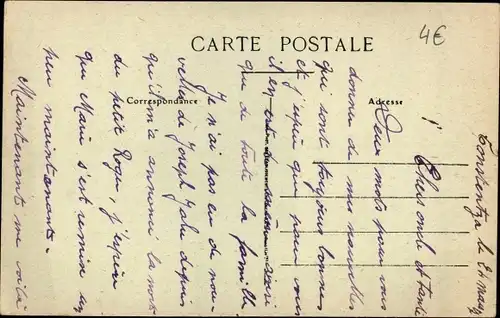 CARTE POSTALE
4€
Correspondance
Adresse
Constantza le 24 mars
Chers oncle et tante
Deux mots pour vous
donner de mes nouvelles
qui sont toujours bonnes
et j'espère que pour vous
il en est de même ainsi
que de toute la famille
Je n'ai pas eu de nou-
velles de Joseph depuis
qu'il m'a annoncé la mort
du petit Roger, j'espère
que Marie s'est remise un
peu maintenant.
Maintenant me voilà